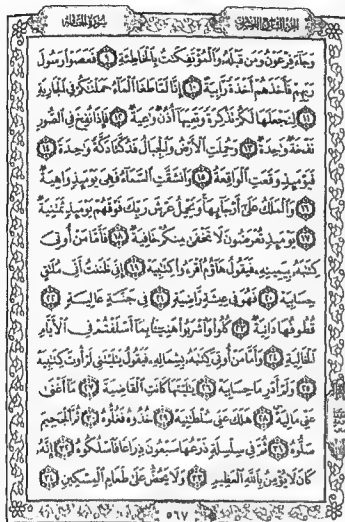 الجزء التاسع والعشرون سورة الحاقة
وجاء فرعون ومن قبله والمؤتفكت بالخاطئة ٩ فعصوا رسول
ربهم فأخذهم أخذة رابية ١٠ إنا لما طغا الماء حملنكم في الجارية
١١ لنجعلها لكم تذكرة وتعيها أذن وعية ١٢ فإذا نفخ في الصور
نفخة وحدة ١٣ وحملت الأرض والجبال فدكتا دكة وحدة ١٤
فيومئذ وقعت الواقعة ١٥ وانشقت السماء فهي يومئذ واهية
١٦ والملك على أرجائها ويحمل عرش ربك فوقهم يومئذ ثمنية
١٧ يومئذ تعرضون لا تخفى منكم خافية ١٨ فأما من أوتي
كتبه بيمينه فيقول هاؤم اقرءوا كتبيه ١٩ إني ظننت أني ملق
حسابيه ٢٠ فهو في عيشة راضية ٢١ في جنة عالية ٢٢
قطوفها دانية ٢٣ كلوا واشربوا هنيئا بما أسلفتم في الأيام
الخالية ٢٤ وأما من أوتي كتبه بشماله فيقول يليتني لم أوت كتبيه
٢٥ ولم أدر ما حسابيه ٢٦ يليتها كانت القاضية ٢٧ ما أغنى
عني ماليه ٢٨ هلك عني سلطنيه ٢٩ خذوه فغلوه ٣٠ ثم الجحيم
صلوه ٣١ ثم في سلسلة ذرعها سبعون ذراعا فاسلكوه ٣٢ إنه
كان لا يؤمن بالله العظيم ٣٣ ولا يحض على طعام المسكين ٣٤
٥٦٧